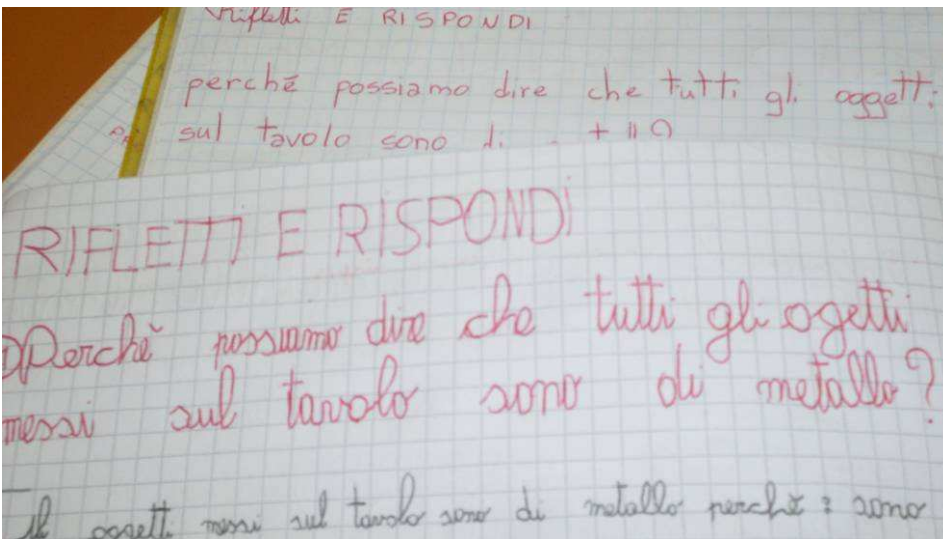 rifletti E RISPONDI
perchē possiamo dire che tutti gli oggetti
sul tavolo sono di
RIFLETTI E RISPONDI
Perchè possiamo dire che tutti gli ogetti
messi sul tavolo sono di metallo?
ogetti messi sul tavolo sono di metallo perchè : sono